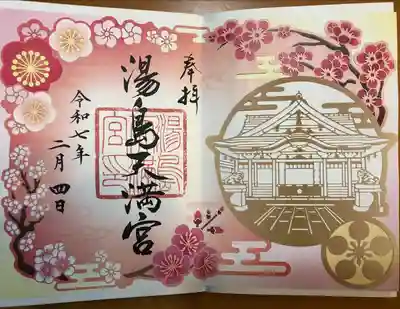 奉拝
湯島天満宮
令和七年
二月四日